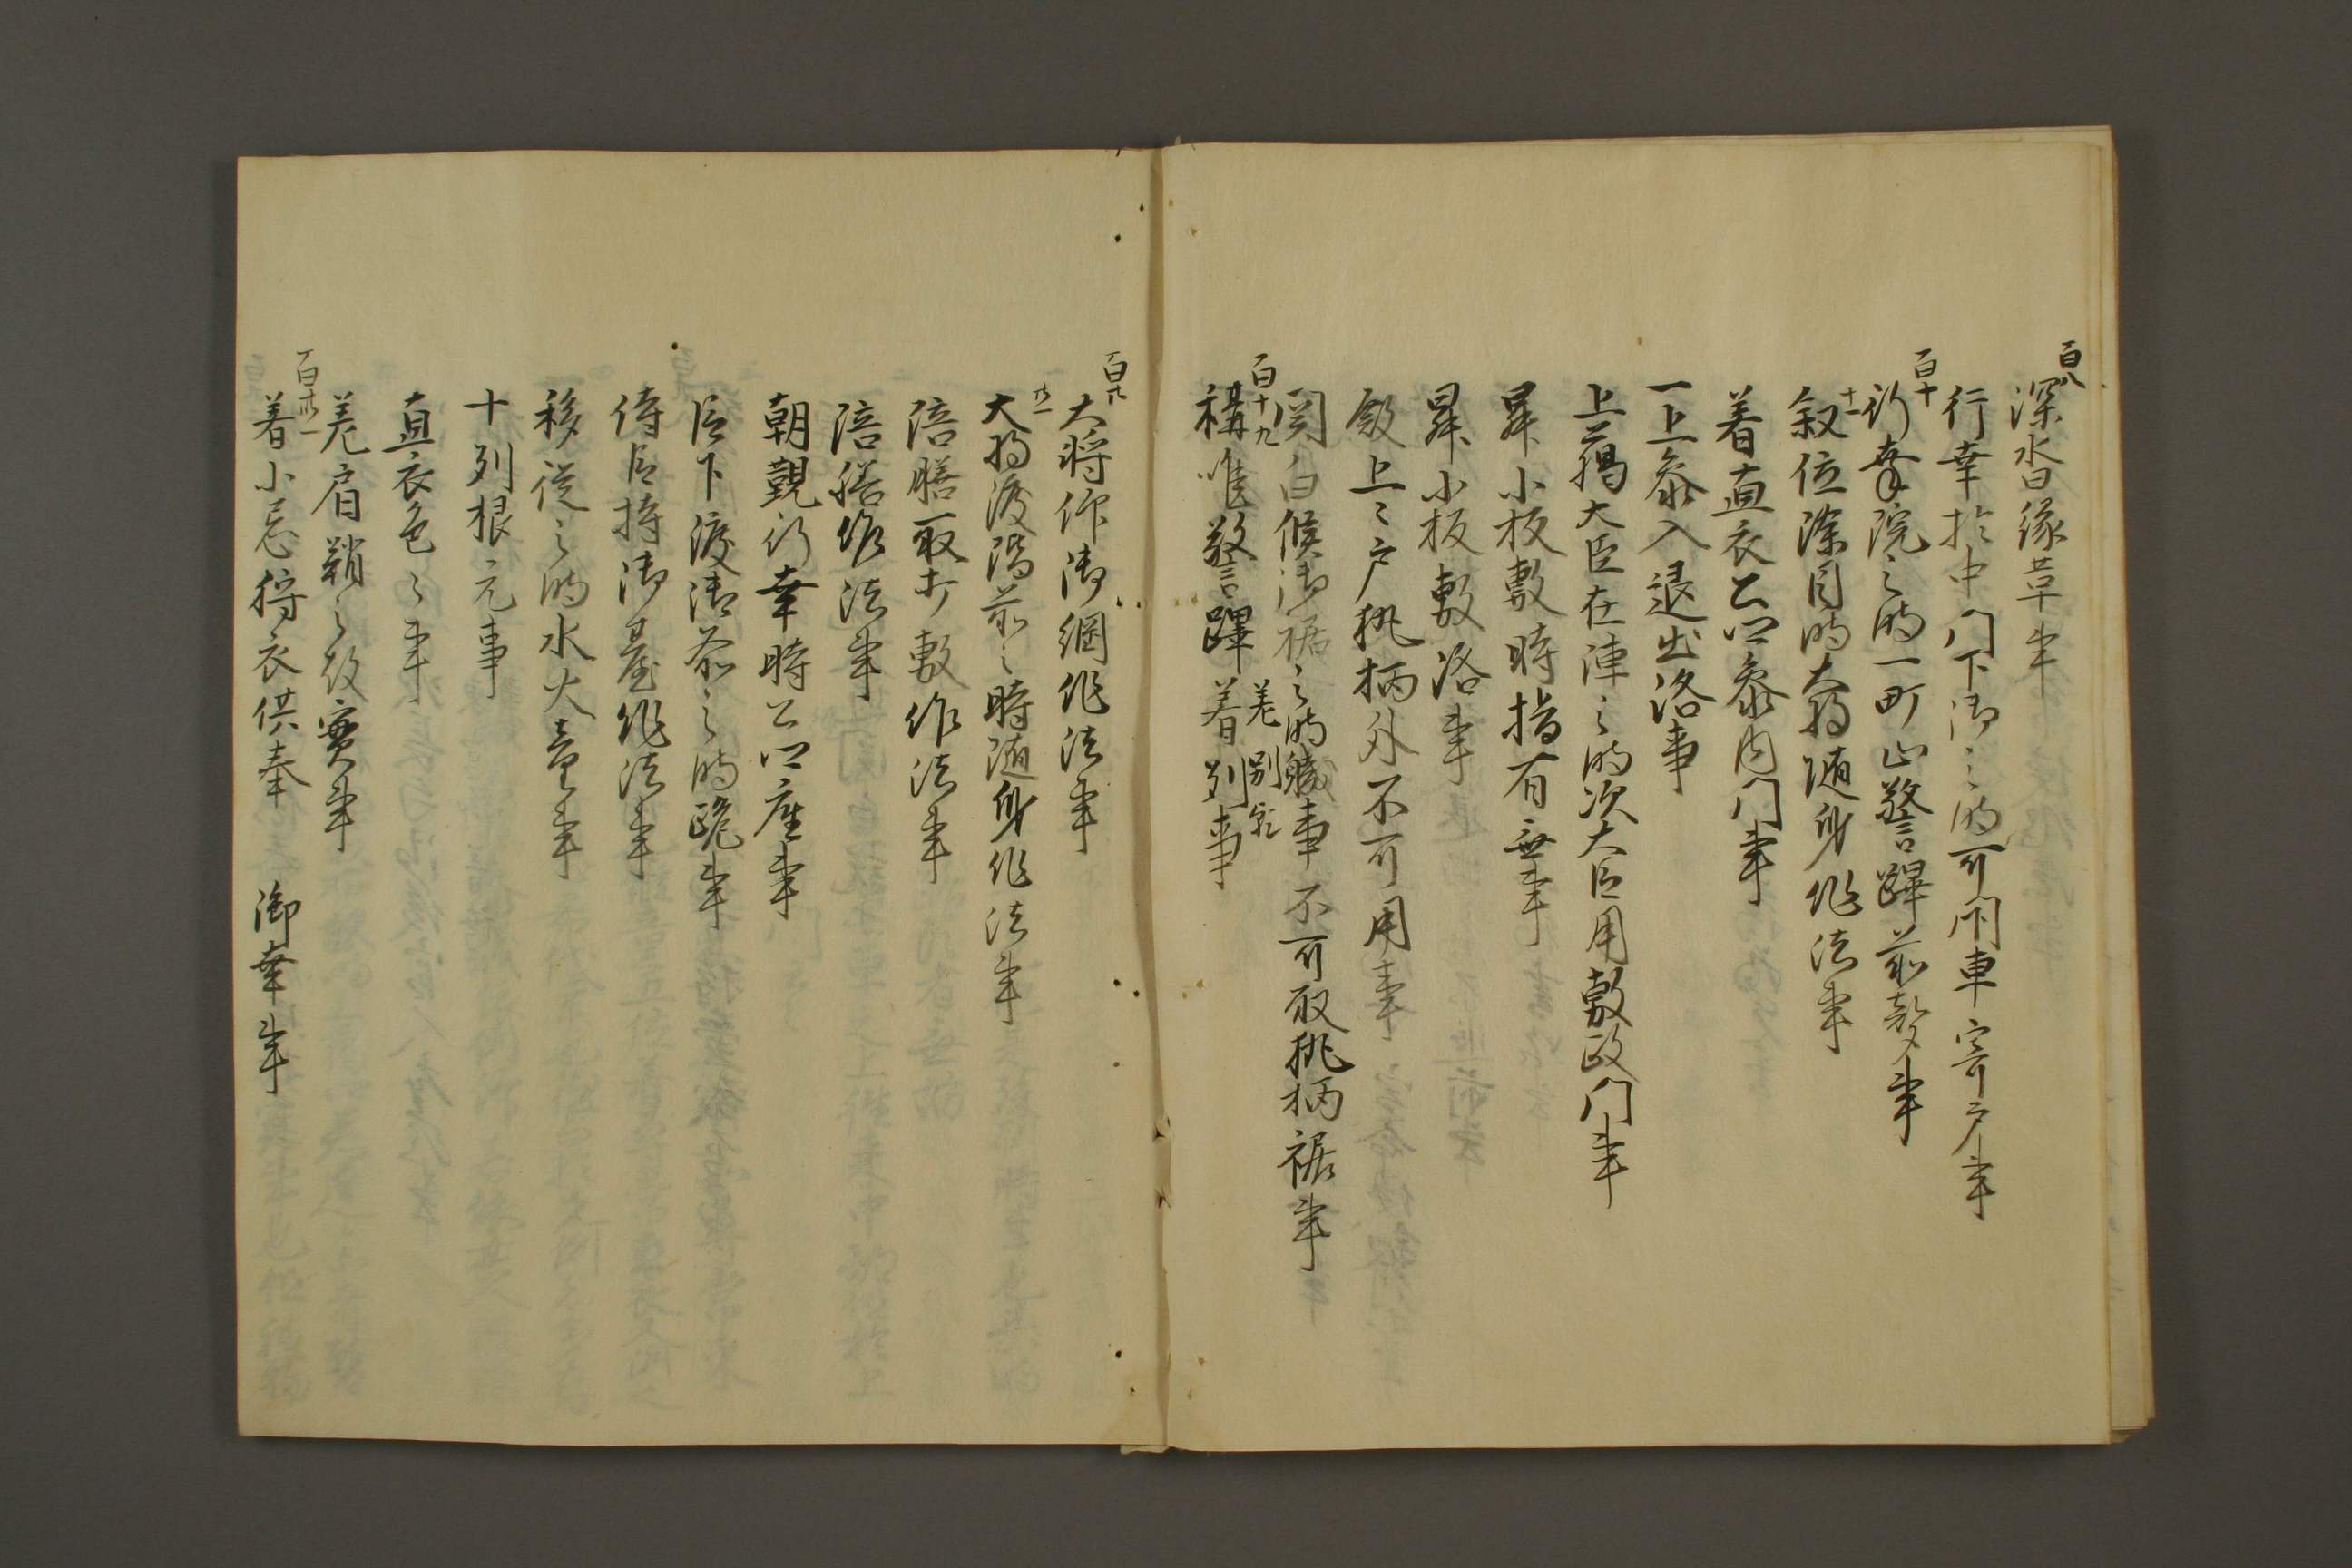 百八
深沓縁草事
行幸於中門下御之時可開車寄戸事
百十
行幸院之時一町止警蹕前声事
十一
叙位除目時大将随身作法事
着直衣公卿参内門事
一上参入退出路事
上臈大臣在陣之時次大臣用敷政門事
昇小板敷時揖有無事
昇小板敷路事
殿上之戸執柄外不可用事
関白候御裾之時職事不可取執柄裾事
百十九
称唯警蹕 差別 着列事
百廿
大将仰御綱作法事
廿一
大将渡階前之時随身作法事
陪膳取打敷作法事
陪膳作法事
朝覲行幸時公卿座事
臣下渡御前之時跪事
侍臣持御台作法事
移従之時水火童事
十列根元事
直衣色之事
差肩鞘之故実事
百卅一
着小忌狩衣供奉 御幸事